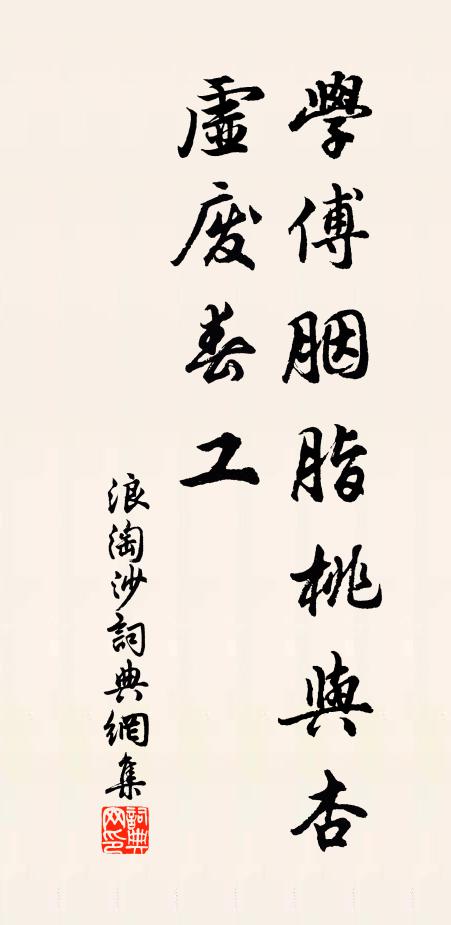 學傅胭脂桃與杏
虛廢春工
浪淘沙詞典網集
詞典网印